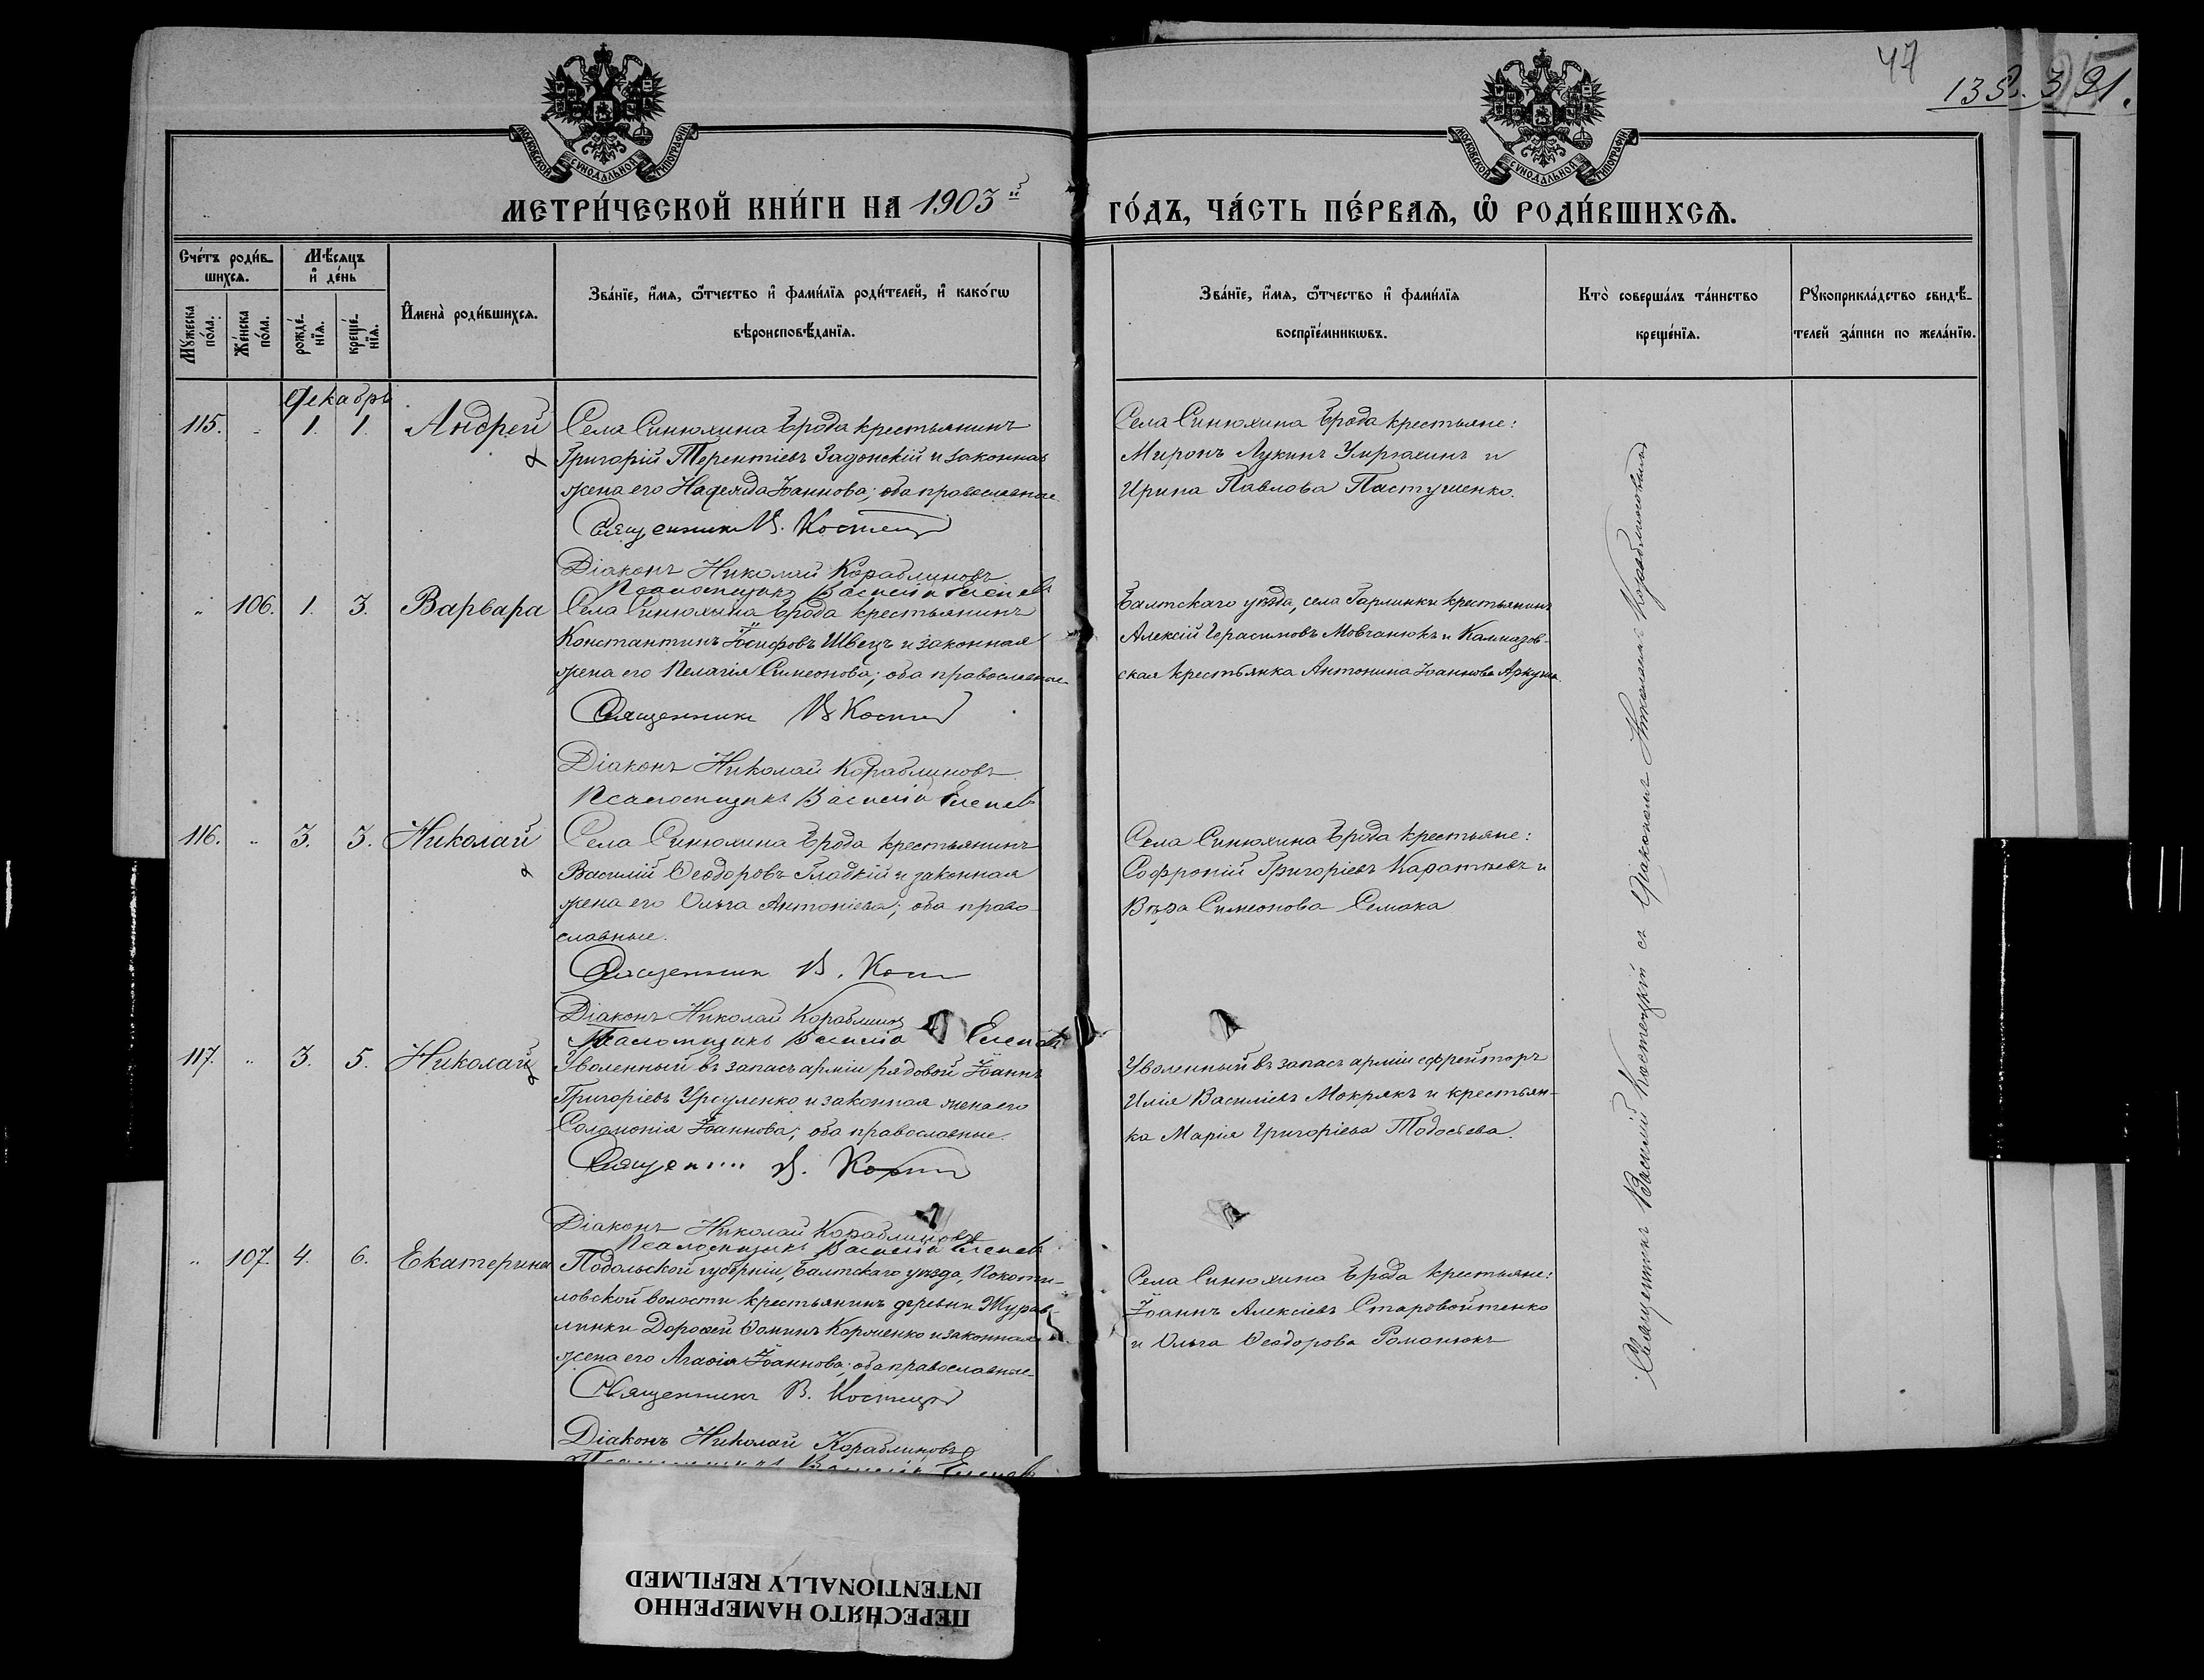 47
132. 3 91.
МОСКОВСКОЙ СѴНОДАЛЬНОЙ ТИПОГРАФІИ
МОСКОВСКОЙ СѴНОДАЛЬНОЙ ТИПОГРАФІИ
МЕТРИ́ЧЕСКОЙ КНИ́ГИ НА 1903й
ГО́ДЪ, ЧА́СТЬ ПЕ́РВАѦ, Ѽ РОДИ́ВШИХСѦ.
Сче́тъ роди́в-
шихсѧ.
Мѣ́сѧцъ
и҆ де́нь
Мꙋ́жеска по́ла.
Же́нска по́ла.
рожде́-
нїѧ.
креще́-
нїѧ.
И҆мена̀ роди́вшихсѧ.
Зва́нїе, и҆́мѧ, ѻ҆́тчество и҆ фами́лїѧ роди́телей, и҆ како́гѡ
вѣроисповѣ́данїѧ.
Зва́нїе, и҆́мѧ, ѻ҆́тчество и҆ фами́лїѧ
воспрїе́мникѡвъ.
Кто̀ соверша́лъ та́инство
креще́нїѧ.
Рꙋкоприкла́дство свидѣ́-
телей за́писи по жела́нїю.
Декабрь
115. " 1. 1. Андрей
Села Синюхина Брода крестьянинъ
Григорій Терентіевъ Задонскій и законная
жена его Надежда Іоаннова; оба православные
Священникъ В. Костец
Діаконъ Николай Кораблиновъ
Псаломщикъ Василій
Села Синюхина Брода крестьяне:
Миронъ Лукинъ Умрихинъ и
Ирина Павлова Пастушенко.
" 106. 1. 3. Варвара
Села Синюхина Брода крестьянинъ
Константинъ Іосифовъ Швецъ и законная
жена его Пелагія Симеонова; оба православные
Священникъ В Кост
Діаконъ Николай Кораблиновъ
Псаломщикъ Василій
Балтскаго уѣзда, села Гарлинки крестьянинъ
Алексій Герасимовъ Мовчанюкъ и Калмазов-
ская крестьянка Антонина Іоаннова
116. " 3. 3. Николай
Села Синюхина Брода крестьянинъ
Василій Ѳеодоровъ Гладкій и законная
жена его Ольга Антоніева; оба право-
славные.
Священник В. Кос
Діаконъ Николай Кораблинов
Псаломщикъ Василій
Села Синюхина Брода крестьяне:
Софроній Григоріевъ Каратѣевъ и
Вѣра Симеонова Семака
117. " 3. 5. Николай
Уволенный въ запасъ арміи рядовой Іоаннъ
Григоріевъ Урсуленко и законная жена его
Соломонія Іоаннова; оба православные.
Священ В. Кост
Діаконъ Николай Кораблиновъ
Псаломщикъ Василій
Уволенный въ запасъ арміи ефрейторъ
Илія Василіевъ Мокрякъ и крестьян-
ка Марія Григоріева Тодосьева.
" 107. 4. 6. Екатерина
Подольской губерніи, Балтскаго уѣзда, Покоти-
ловской волости крестьянинъ деревни Журав-
линки Дорофей Ѳоминъ Корженко и законная
жена его Агафія Іоаннова; оба православные
Священникъ В. Костец
Діаконъ Николай Кораблиновъ
Села Синюхина Брода крестьяне:
Іоаннъ Алексіевъ Старовойтенко
и Ольга Ѳеодорова Романюкъ
Священникъ Василій Костецкій съ діакономъ Николаемъ Кораблиновымъ
ПЕРЕСНЯТО НАМЕРЕННО
INTENTIONALLY REFILMED